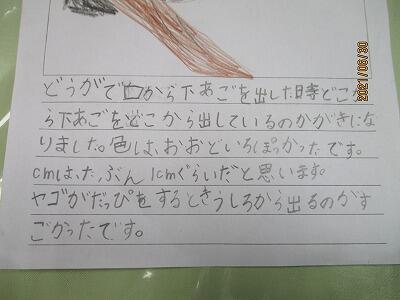 2021/06/30
どうがで口から下あごを出した時どこか
ら下あごをどこから出しているのかがきにな
りました。色は、おおどいろぽっかったです。
cmは、たぶん1cmぐらいだと思います。
ヤゴがだっぴをするときうしろから出るのがす
ごかったです。